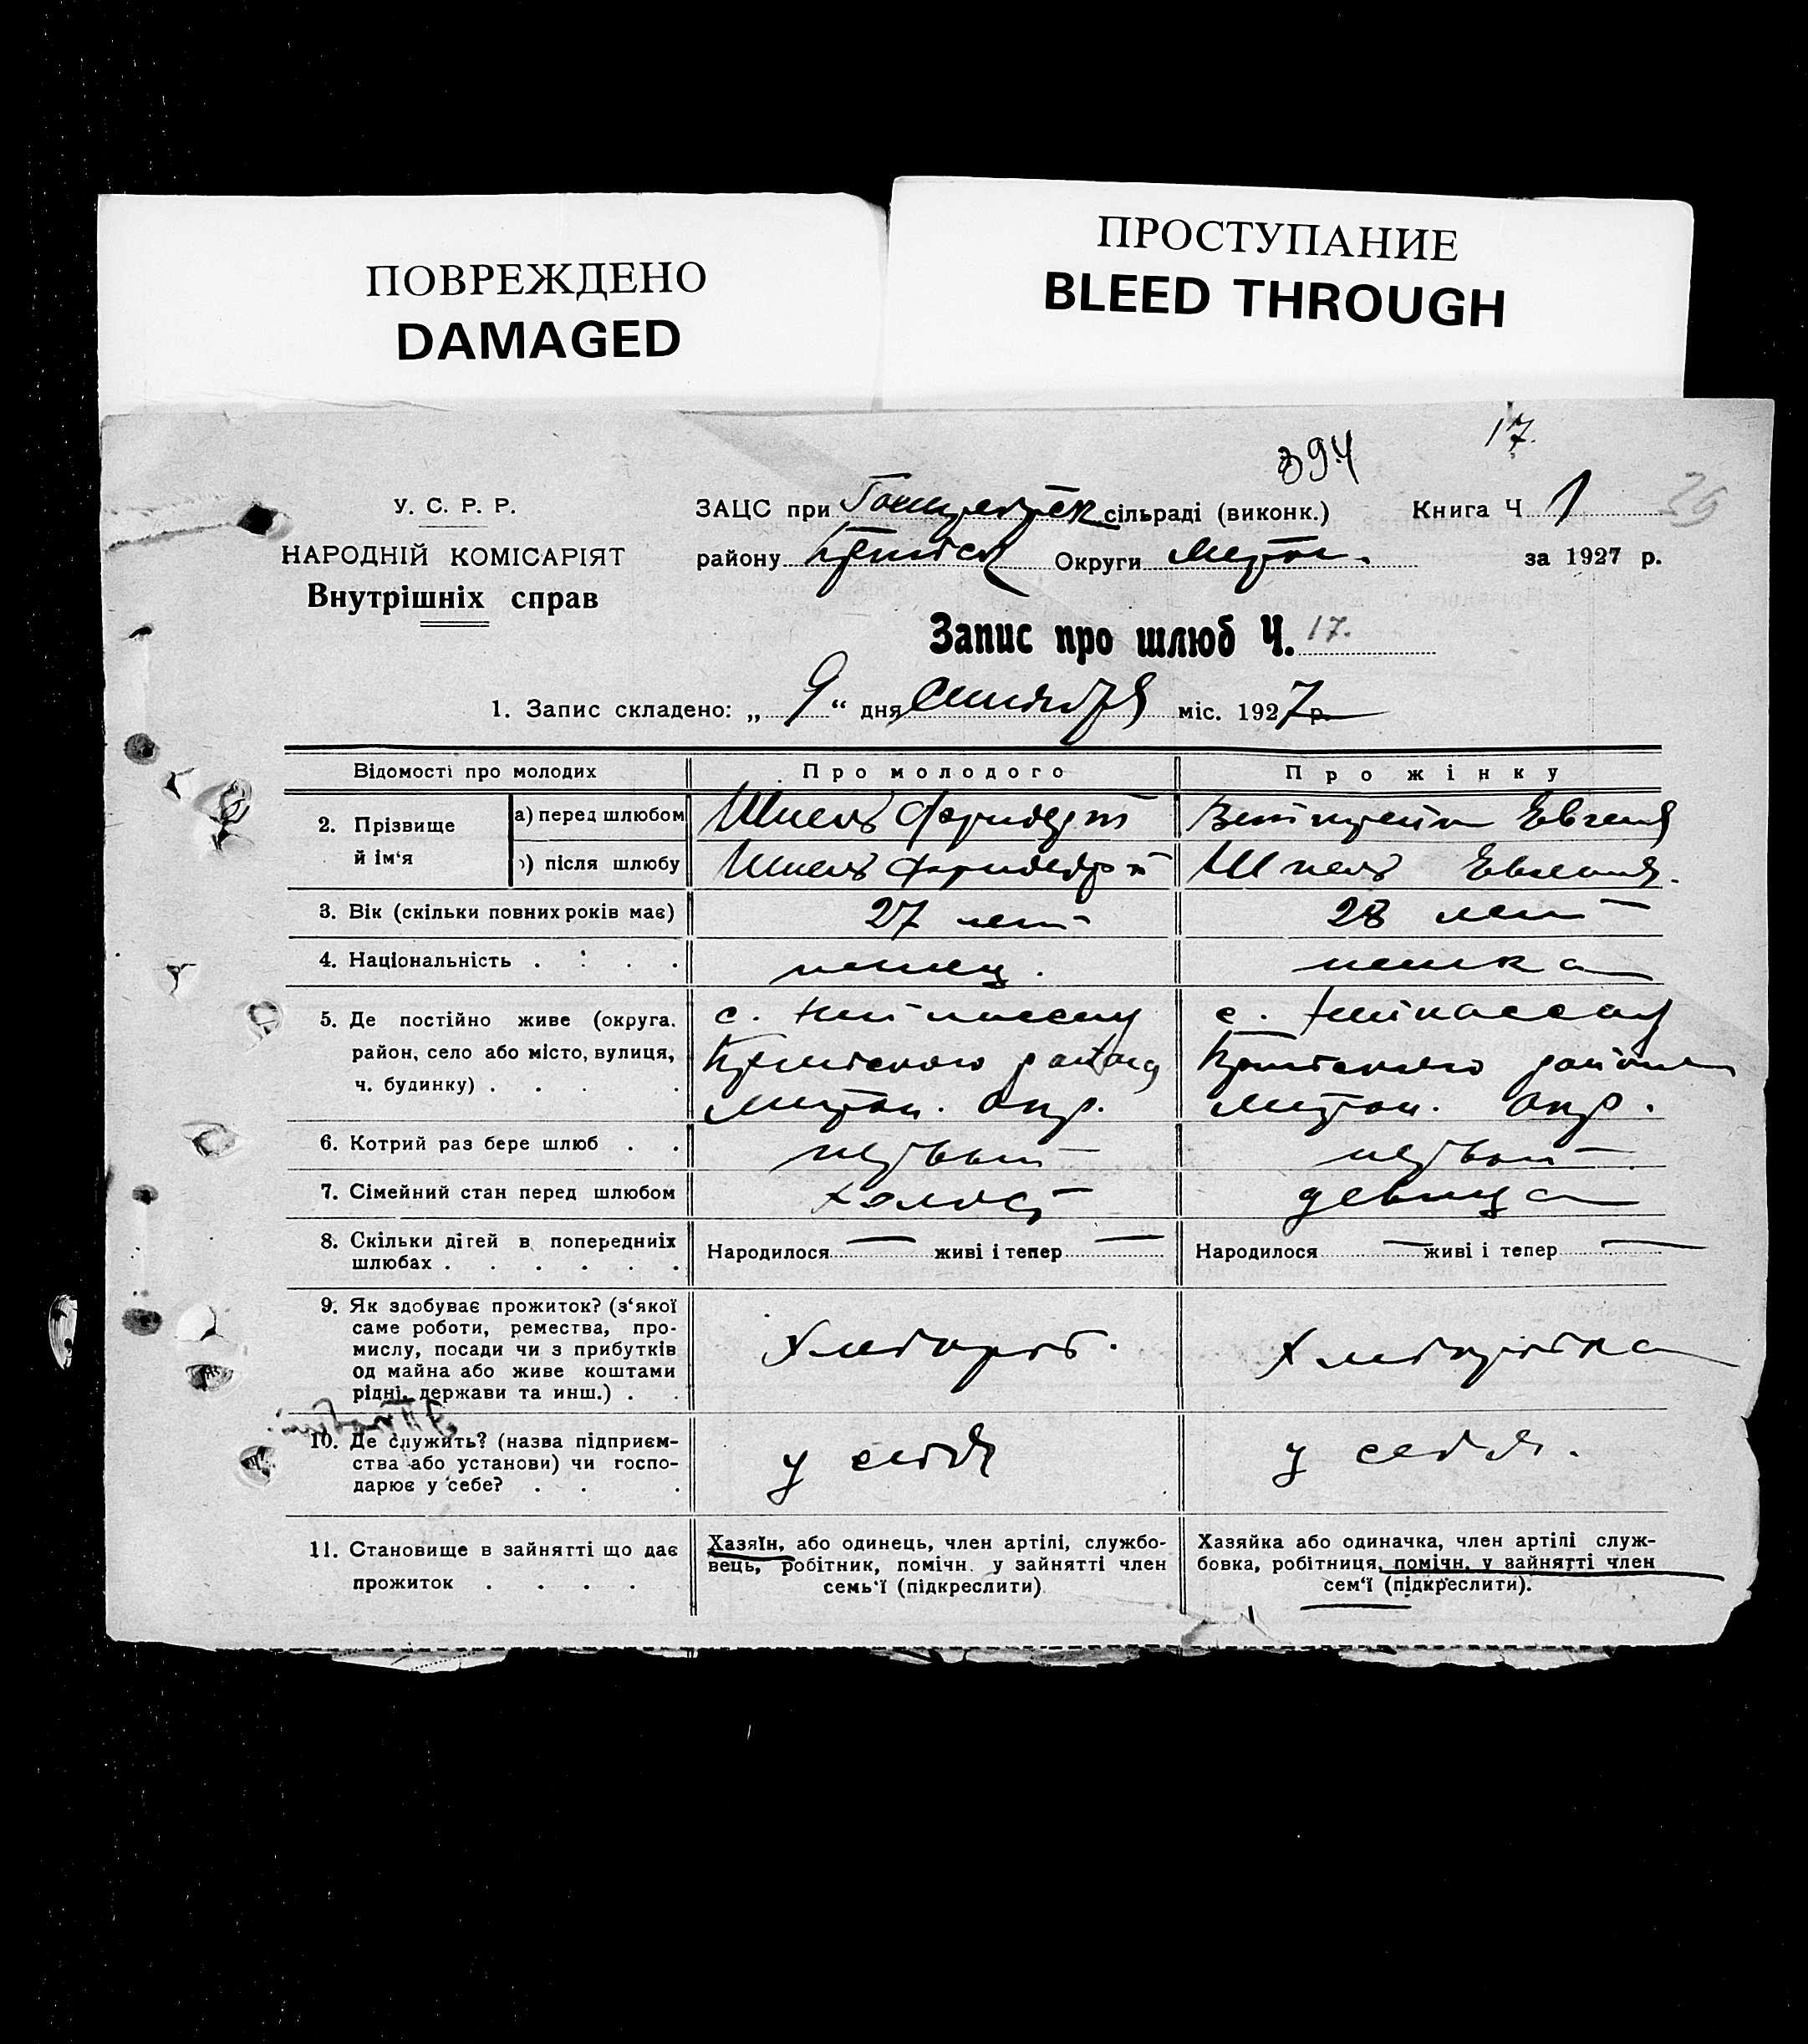 ПОВРЕЖДЕНО
DAMAGED
ПРОСТУПАНИЕ
BLEED THROUGH
17.
394
У. С. Р. Р.
НАРОДНІЙ КОМІСАРІЯТ
Внутрішніх справ
ЗАЦС при сільраді (виконк.) Книга Ч 1 29
району Округи за 1927 р.
Запис про шлюб Ч. 17.
1. Запис складено: „ 9 “ дня Сентября міс. 1927 р.
Відомості про молодих Про молодого Про жінку
2. Прізвище й ім‘я
а) перед шлюбом Шпель Фридрих Евгения
) після шлюбу Шпель Фридрих Шпель Евгения.
3. Вік (скільки повних років має) 27 лет 28 лет
4. Національність . : . . немец. немка
5. Де постійно живе (округа.
район, село або місто, вулиця,
ч. будинку) . . . .
с. района
окр.
с. района
окр.
6. Котрий раз бере шлюб . . первый первый
7. Сімейний стан перед шлюбом холост девица
8. Скільки дітей в попередниіх
шлюбах . . . . . .
Народилося — живі і тепер —
Народилося — живі і тепер —
9. Як здобуває прожиток? (з‘якої
саме роботи, ремества, про-
мислу, посади чи з прибутків
од майна або живе коштами
рідні, держави та инш.) . .
Хлебороб.
Хлеборобка
10. Де служить? (назва підприєм-
ства або установи) чи госпо-
дарює у себе? . . .
у себя
у себя.
11. Становище в зайнятті що дає
прожиток . . . .
Хазяїн, або одинець, член артілі, службо-
вець, робітник, помічн. у зайнятті член
семь‘ї (підкреслити)
Хазяйка або одиначка, член артілі служ-
бовка, робітниця, помічн. у зайнятті член
сем‘ї (підкреслити).